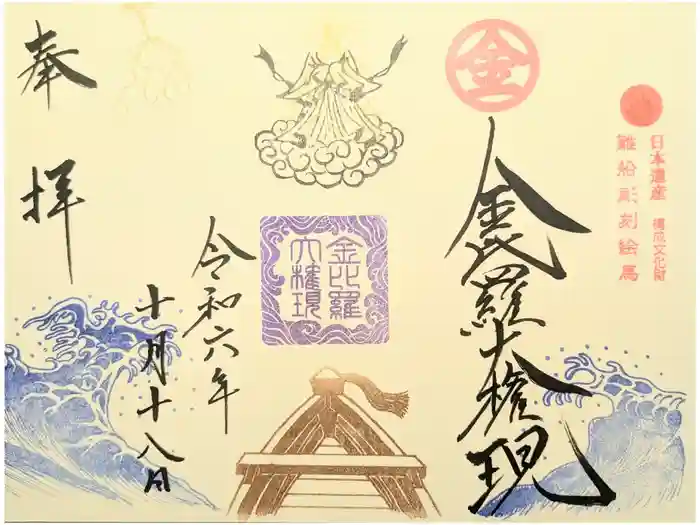 金
日本遺産 構成文化財
難船彫刻絵馬
金毘羅大権現
金比羅
大権現
奉拝
令和六年
十月十八日